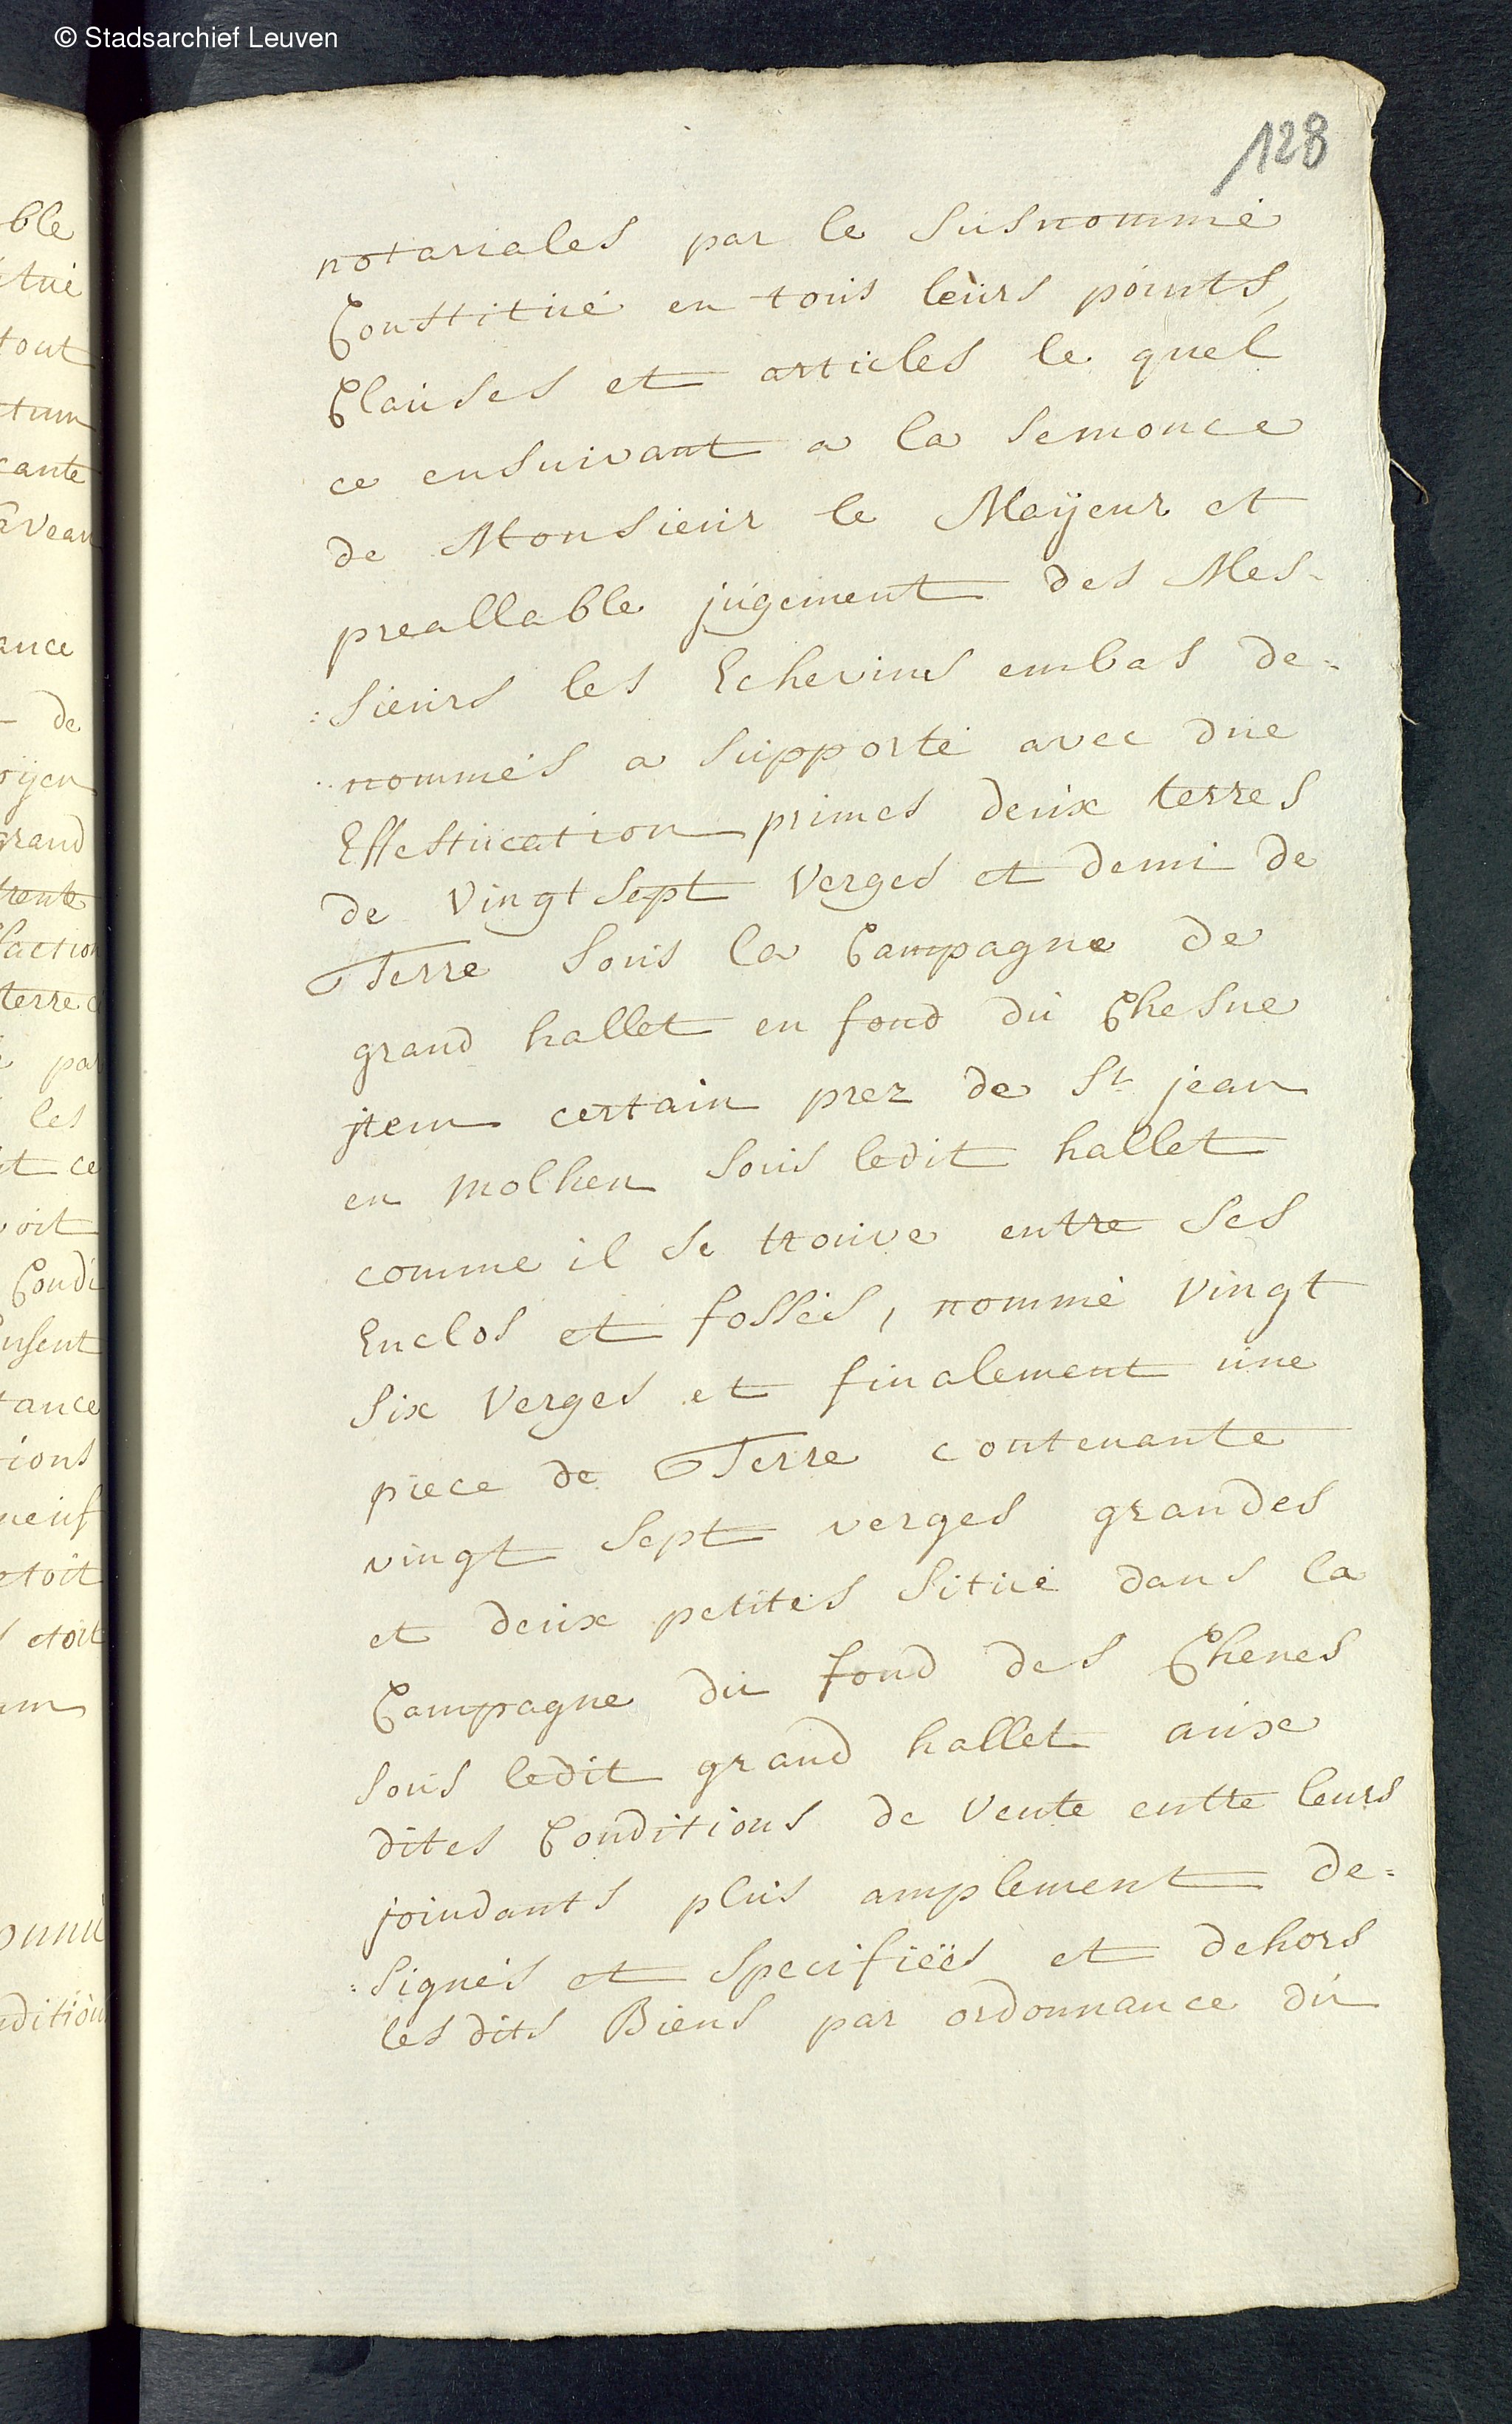 © Stadsarchief Leuven
128
notariales par le susnommé
Constitué en tous leurs points,
Clauses et articles le quel
ce ensuivant a la semonce
de Monsieur le Maÿeur et
preallable jugement des Mes-
:sieurs les Echevins embas de=
:nommés a supporté avec due
Effestucation primes deux terres
de vingt sept verges et demi de
Terre sous la Campagne de
grand hallet en fond du Chesne
jtem certain prez de St jean
en molhen sous ledit hallet
comme il se trouve entre ses
Enclos et fossés, nommé vingt
six verges et finalement une
piece de Terre contenante
vingt sept verges grandes
et deux petites situé dans la
Campagne du fond des Chenes
sous ledit grand hallet aux
dites Conditions de vente entre leurs
joindants plus amplement de=
:signés et specifiëes et dehors
les dits Biens par ordonnance du
ble
tué
tout
tum
cante
aveau
ance
- de
oijen
grand
rente
faction
terre
par
les
et ce
voit
Condi
usent
tance
tions
neuf
etoit
etoit
um
onnu
nditions